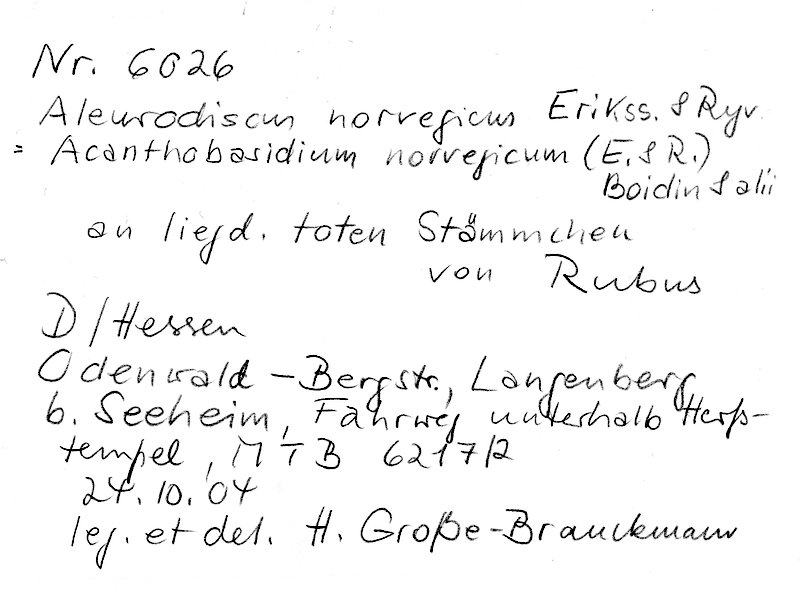 Nr. 6026
Aleurodiscus norvegicus Erikss. & Ryv.
= Acanthobasidium norvegicum (E. & R.)
Boidin & alii
an liegd. toten Stämmchen
von Rubus
D/Hessen
Odenwald – Bergstr., Langenberg
b. Seeheim, Fahrweg unterhalb
tempel, MTB 6217/2
24.10.04
leg. et det. H. Große-Brauckmann